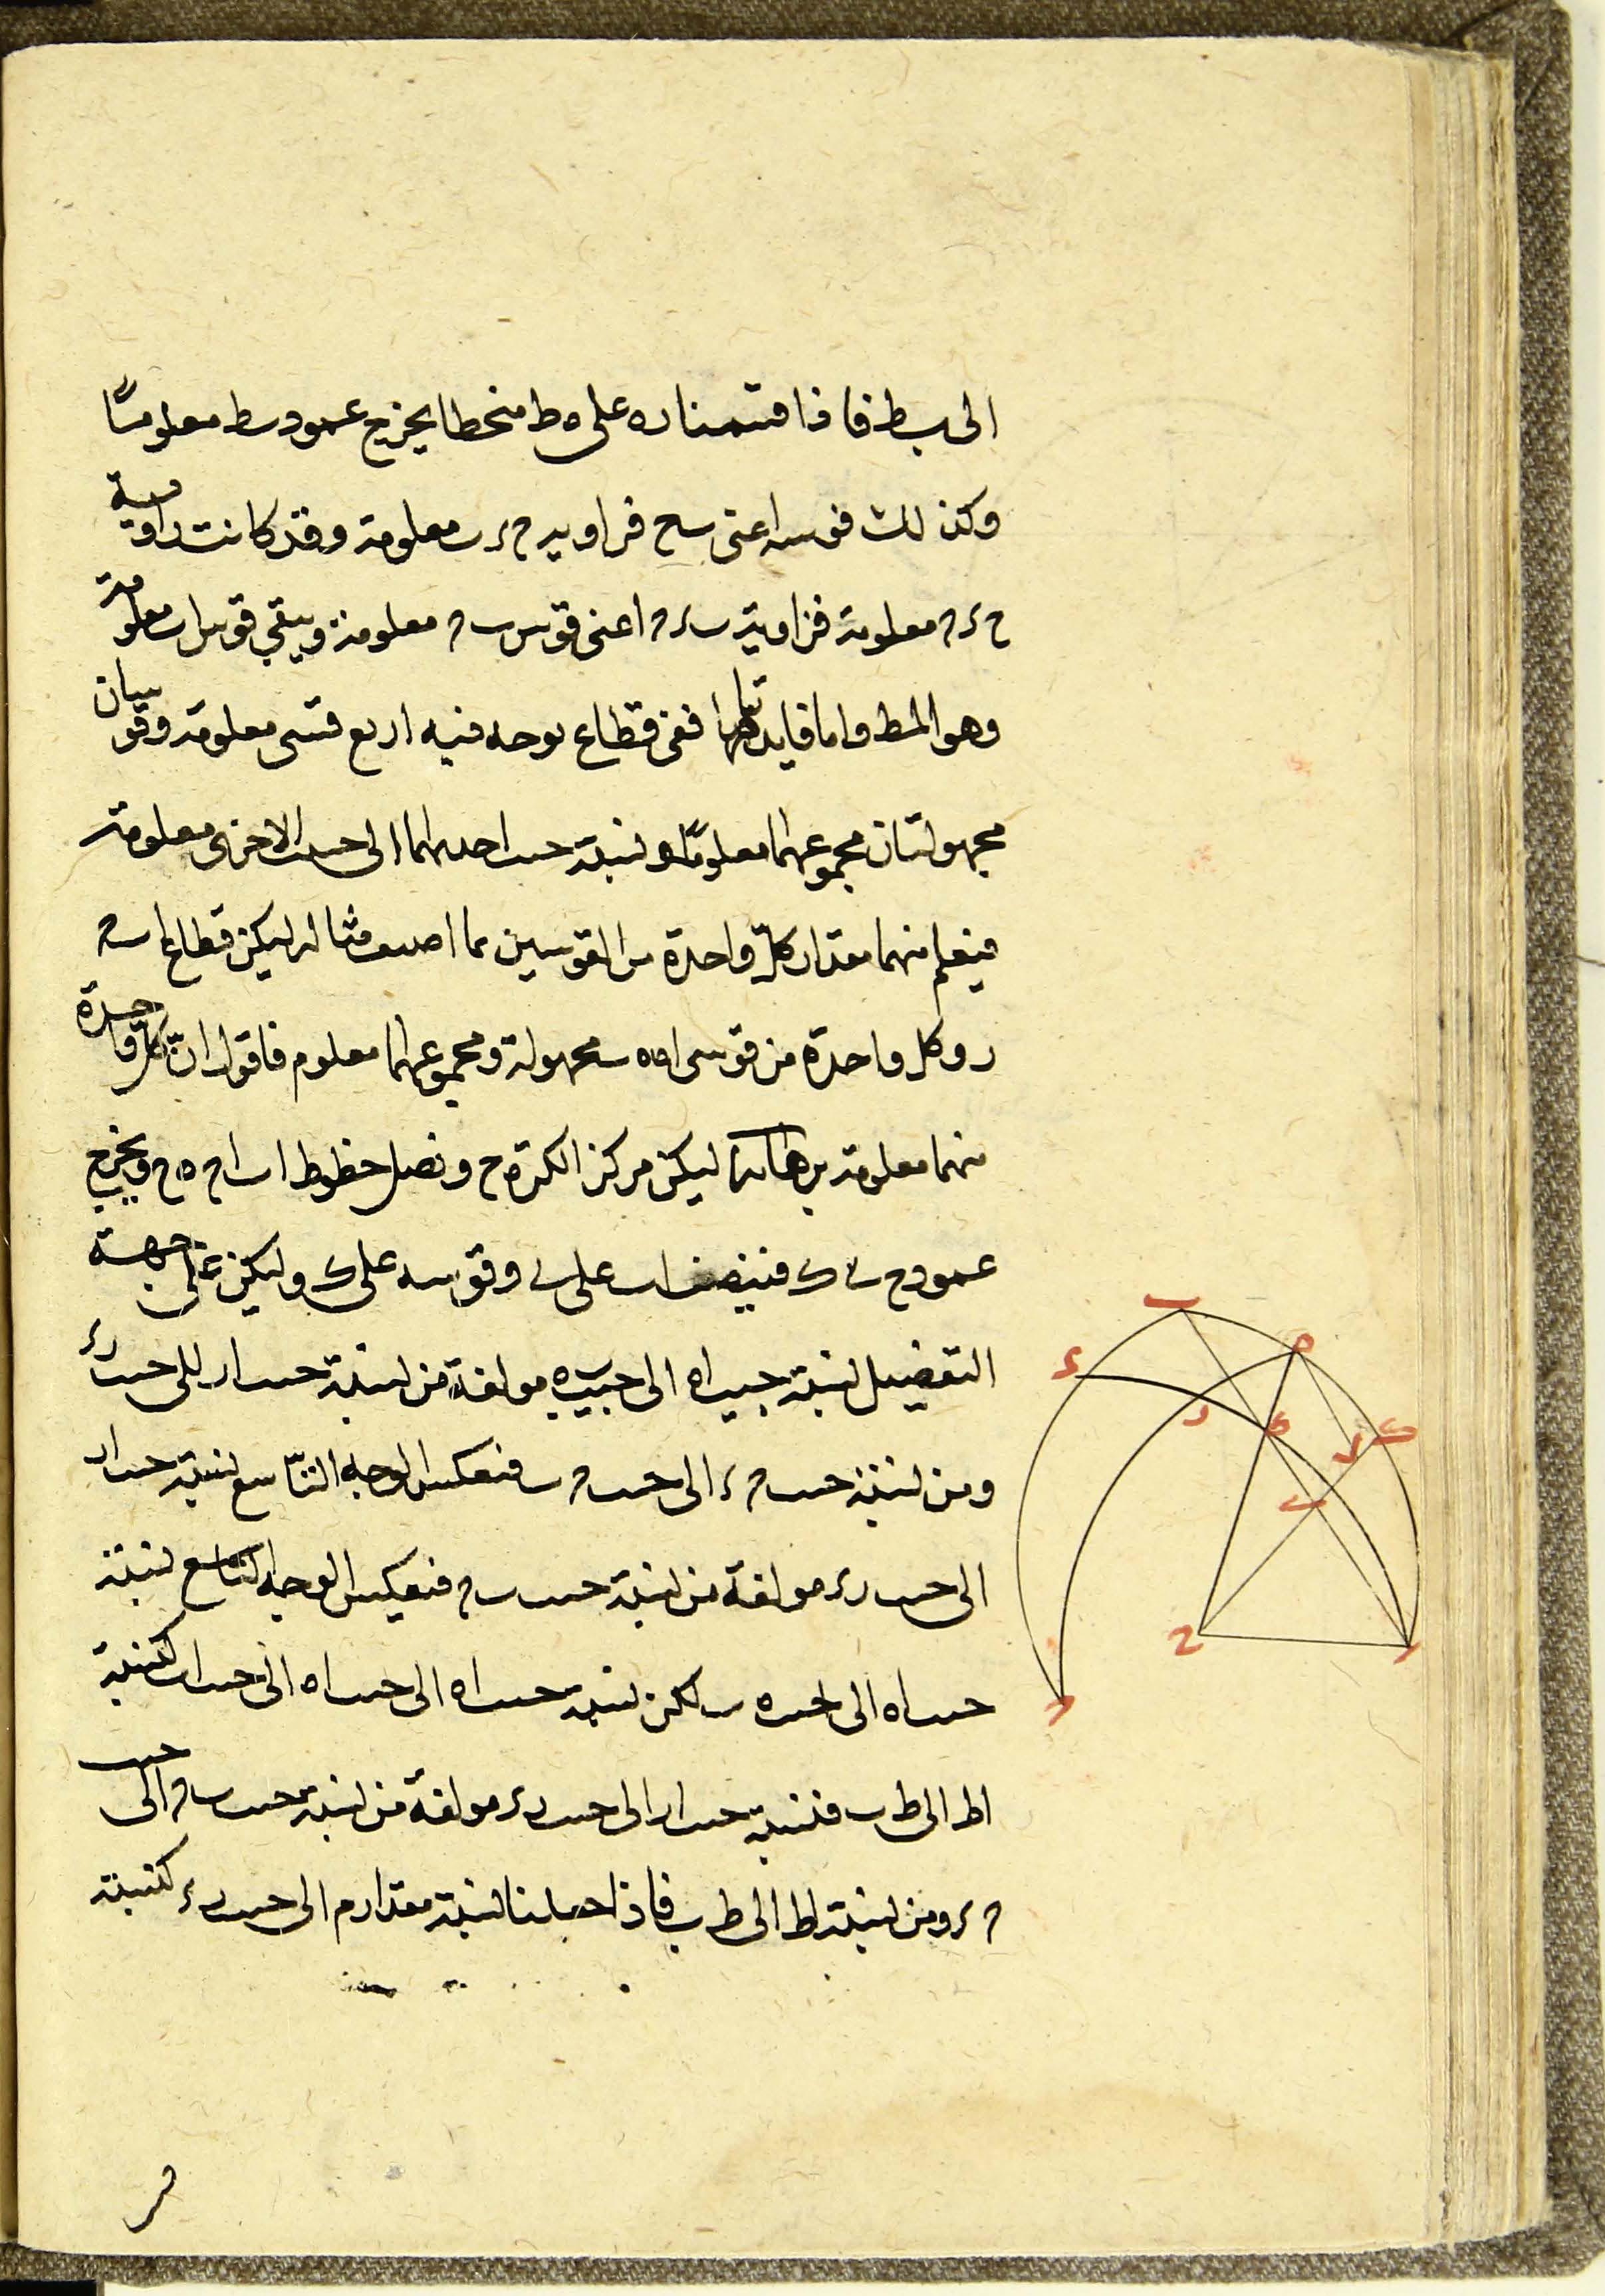 الى بط فاذا قسمنا ره على ه ط منحطا يخرج عمود بط معلومًا
وكذلك قوسه اعنى بح فزاوية ح ء ب معلومة وقد كانت زاوية
ح ء م معلومة فزاوية ب ء م اعنى قوس ب م معلومة ويبقي قوس اب معلومة
وهو المط واما فايدتهما ففى قطاع يوجد فيه اربع قسى معلومة وقوسان
مجهولتان مجموعهما معلومًا ونسبة حب احديهما الى حب الاخرى معلومة
فيعلم منهما مقدار كل واحدة من القوسين مما اصف مثاله ليكن قطاع اب م
ر وكل واحدة من قوسى اه ه ب مجهولة ومجموعهما معلوم فاقول ان كل واحدة
منهما معلومة برهانه ليكن مركز الكرة ح ونصل خطوط اب اح ه ح ويخرج
عمود ح ى ك فينصف اب على ى وقوسه على ك وليكن على جهة
التفصيل نسبة جيب اه الى جيب ه ب مولفة من نسبة حب ار الى حب رء
ومن نسبة حب م ء الى حب م ب فبعكس الوجه التاسع نسبة حب ار
الى حب رء مولفة من نسبة حب ب م فبعكس الوجه التاسع نسبة
حب اه الى حب ه ب لكن نسبة حب اه الى حب اه الى حب اب كنسبة
اط الى ط ب فنسبة حب ار الى حب رء مولفة من نسبة حب ب م الى حب
م ء ومن نسبة اط الى ط ب فاذا جعلنا نسبة مقدار م الى حب رء كنسبة